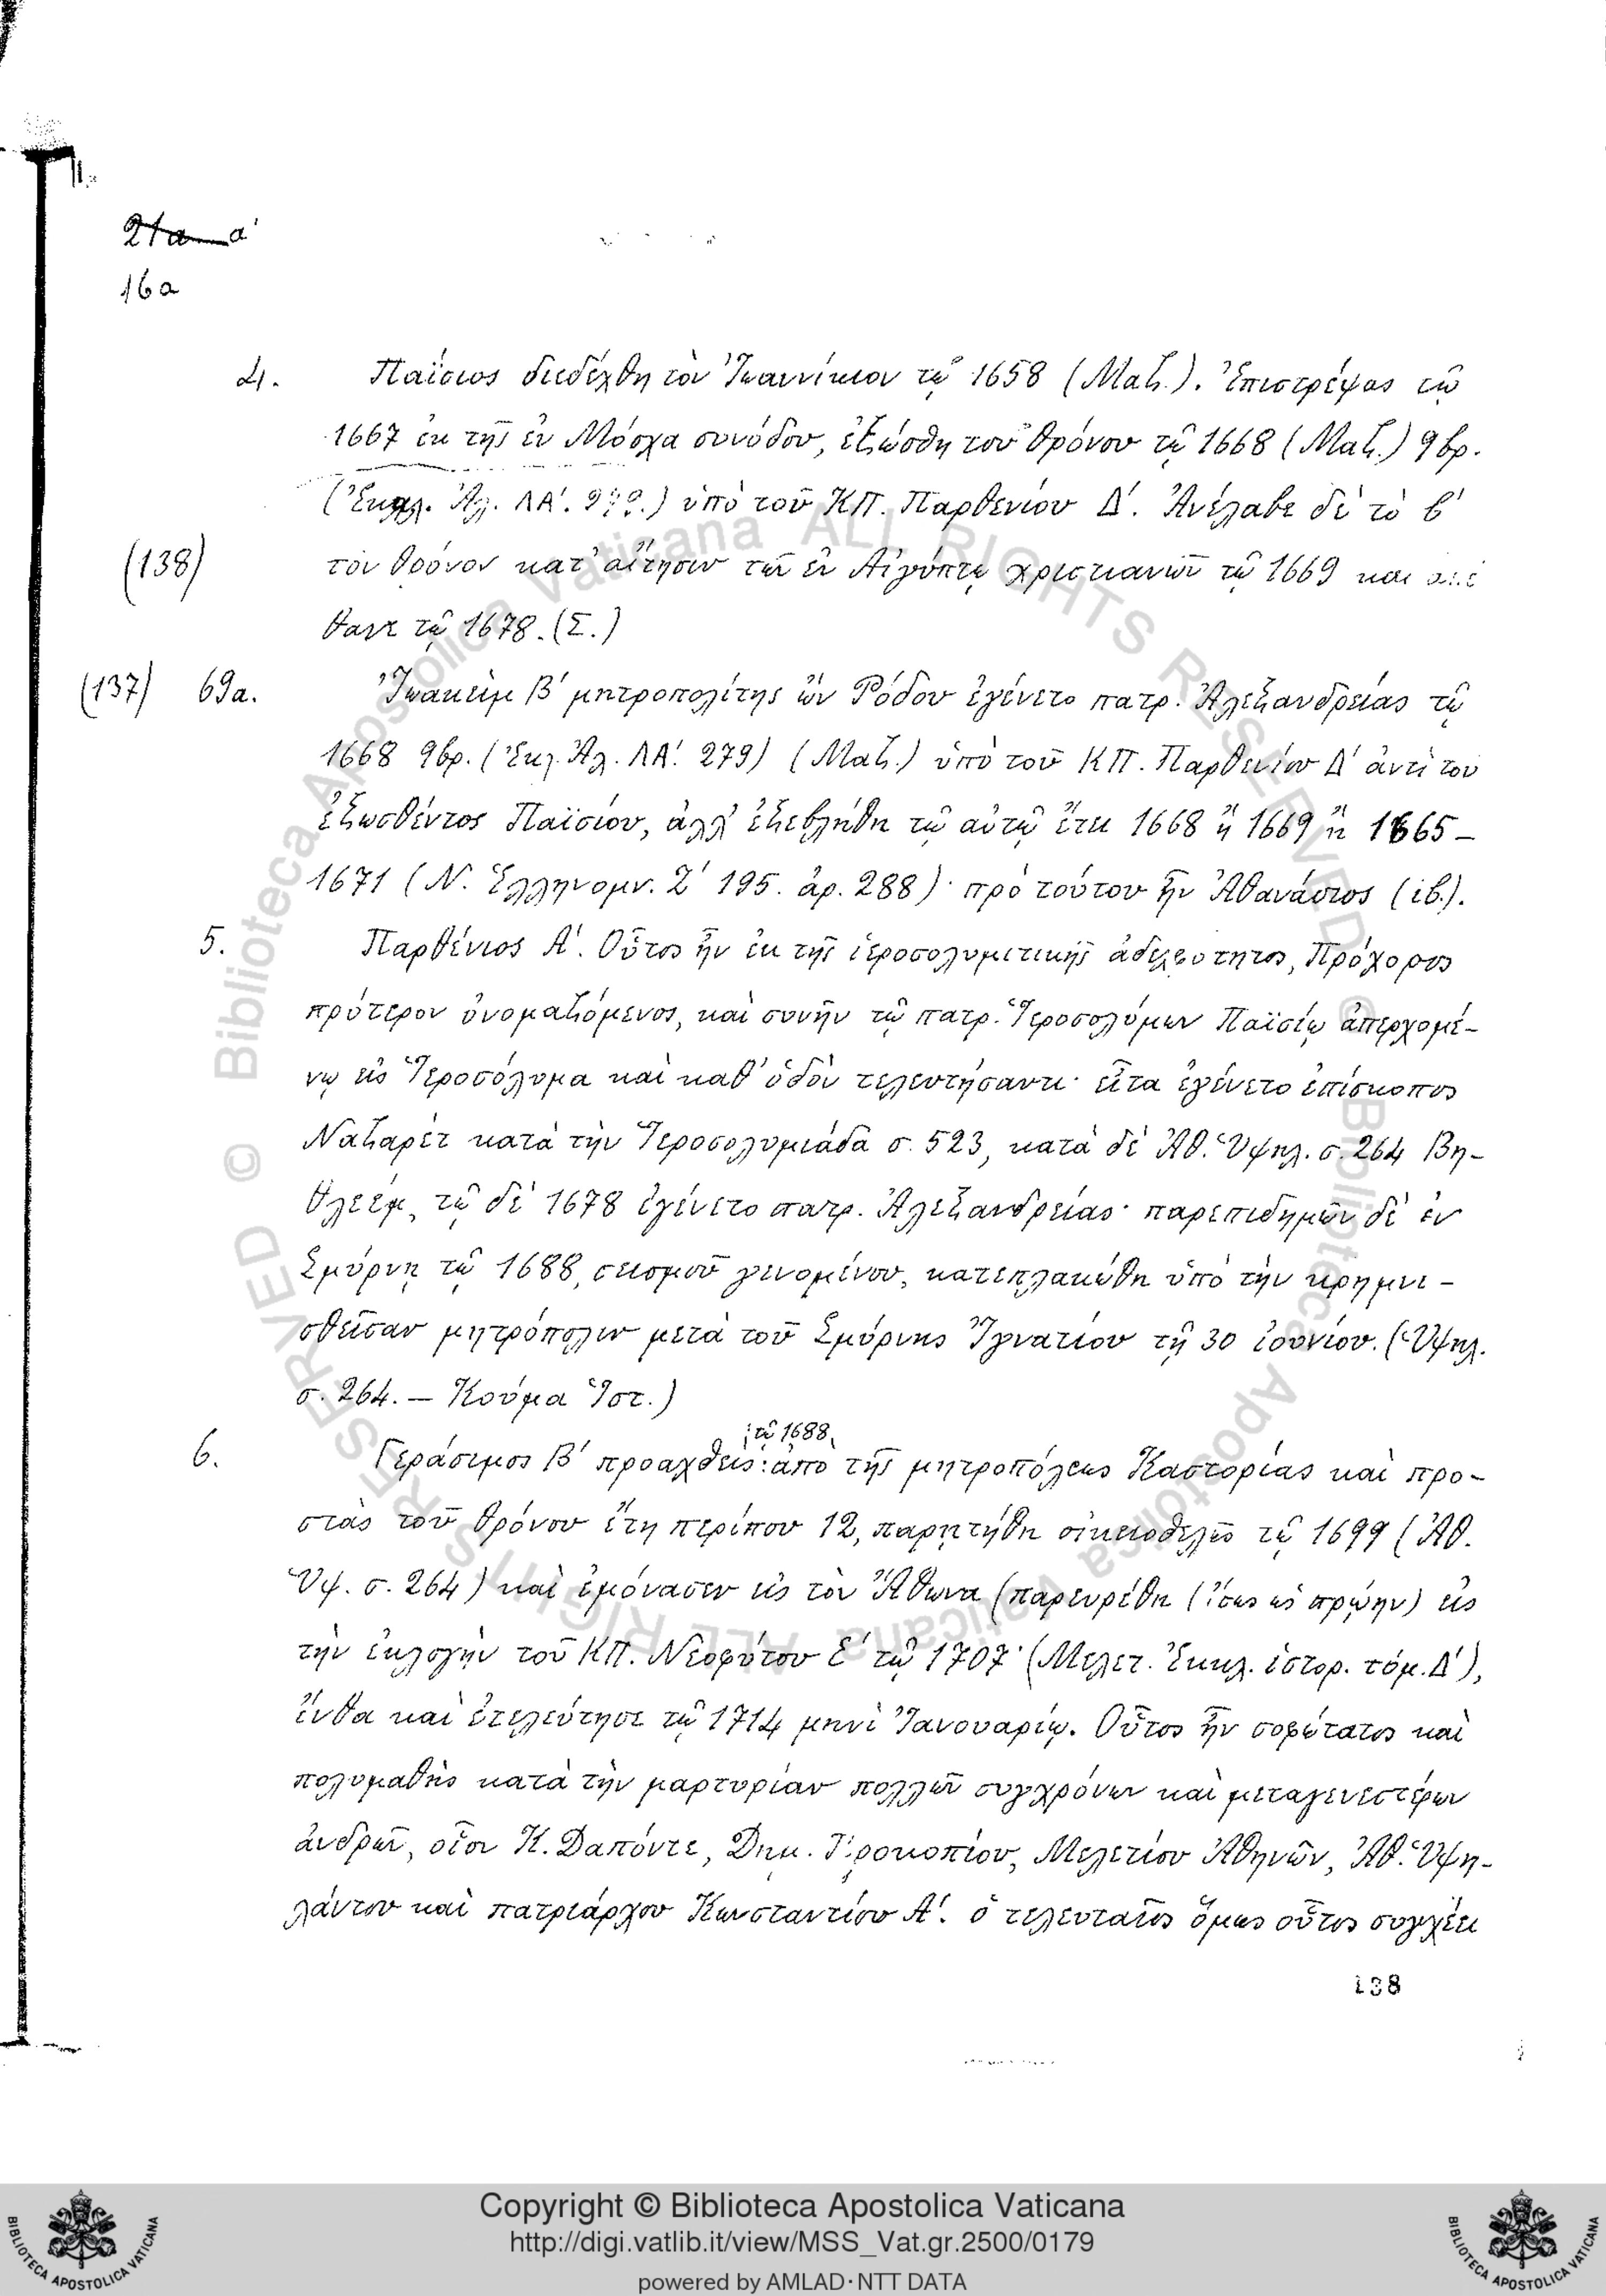 21a α'
16a
4. Παΐσιος διεδέχθη τὸν Ἰωαννίκιον τῷ 1658 (Ματζ.). Ἐπιστρέψας τῷ
1667 ἐκ τῆς ἐν Μόσχᾳ συνόδου, ἐξώσθη τοῦ θρόνου τῷ 1668 (Ματζ.) 9βρ.
(Ἐκκλ. Ἀλ. ΛΑ'. 279.) ὑπὸ τοῦ ΚΠ. Παρθενίου Δ'. Ἀνέλαβε δὲ τὸ β'
(138) τὸν θρόνον κατ' αἴτησιν τῶν ἐν Αἰγύπτῳ χριστιανῶν τῷ 1669 καὶ
θανε τῷ 1678. (Σ.)
(137) 69a. Ἰωακεὶμ Β' μητροπολίτης ὢν Ῥόδου ἐγένετο πατρ. Ἀλεξανδρείας τῷ
1668 9βρ. (Ἐκκλ. Ἀλ. ΛΑ'. 279) (Ματζ.) ὑπὸ τοῦ ΚΠ. Παρθενίου Δ' ἀντὶ τοῦ
ἐξωσθέντος Παϊσίου, ἀλλ' ἐξεβλήθη τῷ αὐτῷ ἔτει 1668 ἢ 1669 ἢ 1665-
1671 (Ν. Ἑλληνομν. Ζ' 195. ἀρ. 288)· πρὸ τούτου ἦν Ἀθανάσιος (ib.).
5. Παρθένιος Α'. Οὗτος ἦν ἐκ τῆς ἱεροσολυμιτικῆς ἀδελφότητος, Πρόχορος
πρότερον ὀνομαζόμενος, καὶ συνῆν τῷ πατρ. Ἱεροσολύμων Παϊσίῳ ἀπερχομέ-
νῳ εἰς Ἱεροσόλυμα καὶ καθ' ὁδὸν τελευτήσαντι· εἶτα ἐγένετο ἐπίσκοπος
Ναζαρὲτ κατὰ τὴν Ἱεροσολυμιάδα σ. 523, κατὰ δὲ Ἀθ. Ὑψηλ. σ. 264 Βη-
θλεέμ, τῷ δὲ 1678 ἐγένετο πατρ. Ἀλεξανδρείας· παρεπιδημῶν δὲ ἐν
Σμύρνῃ τῷ 1688, σεισμοῦ γενομένου, κατεπλακώθη ὑπὸ τὴν κρημνι-
σθεῖσαν μητρόπολιν μετὰ τοῦ Σμύρνης Ἰγνατίου τῇ 30 ἰουνίου. (Ὑψηλ.
σ. 264. — Κούμα Ἱστ.)
τῷ 1688
6. Γεράσιμος Β' προαχθεὶς ἀπὸ τῆς μητροπόλεως Καστορίας καὶ προ-
στὰς τοῦ θρόνου ἔτη περίπου 12, παρῃτήθη οἰκειοθελῶς τῷ 1699 (Ἀθ.
Ὑψ. σ. 264) καὶ ἐμόνασεν εἰς τὸν Ἄθωνα (παρευρέθη (ἴσως ὡς πρώην) εἰς
τὴν ἐκλογὴν τοῦ ΚΠ. Νεοφύτου Ε' τῷ 1707· (Μελετ. Ἐκκλ. ἱστορ. τόμ. Δ'),
ἔνθα καὶ ἐτελεύτησε τῷ 1714 μηνὶ Ἰανουαρίῳ. Οὗτος ἦν σοφώτατος καὶ
πολυμαθὴς κατὰ τὴν μαρτυρίαν πολλῶν συγχρόνων καὶ μεταγενεστέρων
ἀνδρῶν, οἷον Κ. Δαπόντε, Δημ. Προκοπίου, Μελετίου Ἀθηνῶν, Ἀθ. Ὑψη-
λάντου καὶ πατριάρχου Κωνσταντίου Α'. ὁ τελευταῖος ὅμως οὗτος συγχέει
138
Copyright © Biblioteca Apostolica Vaticana
http://digi.vatlib.it/view/MSS_Vat.gr.2500/0179
powered by AMLAD·NTT DATA